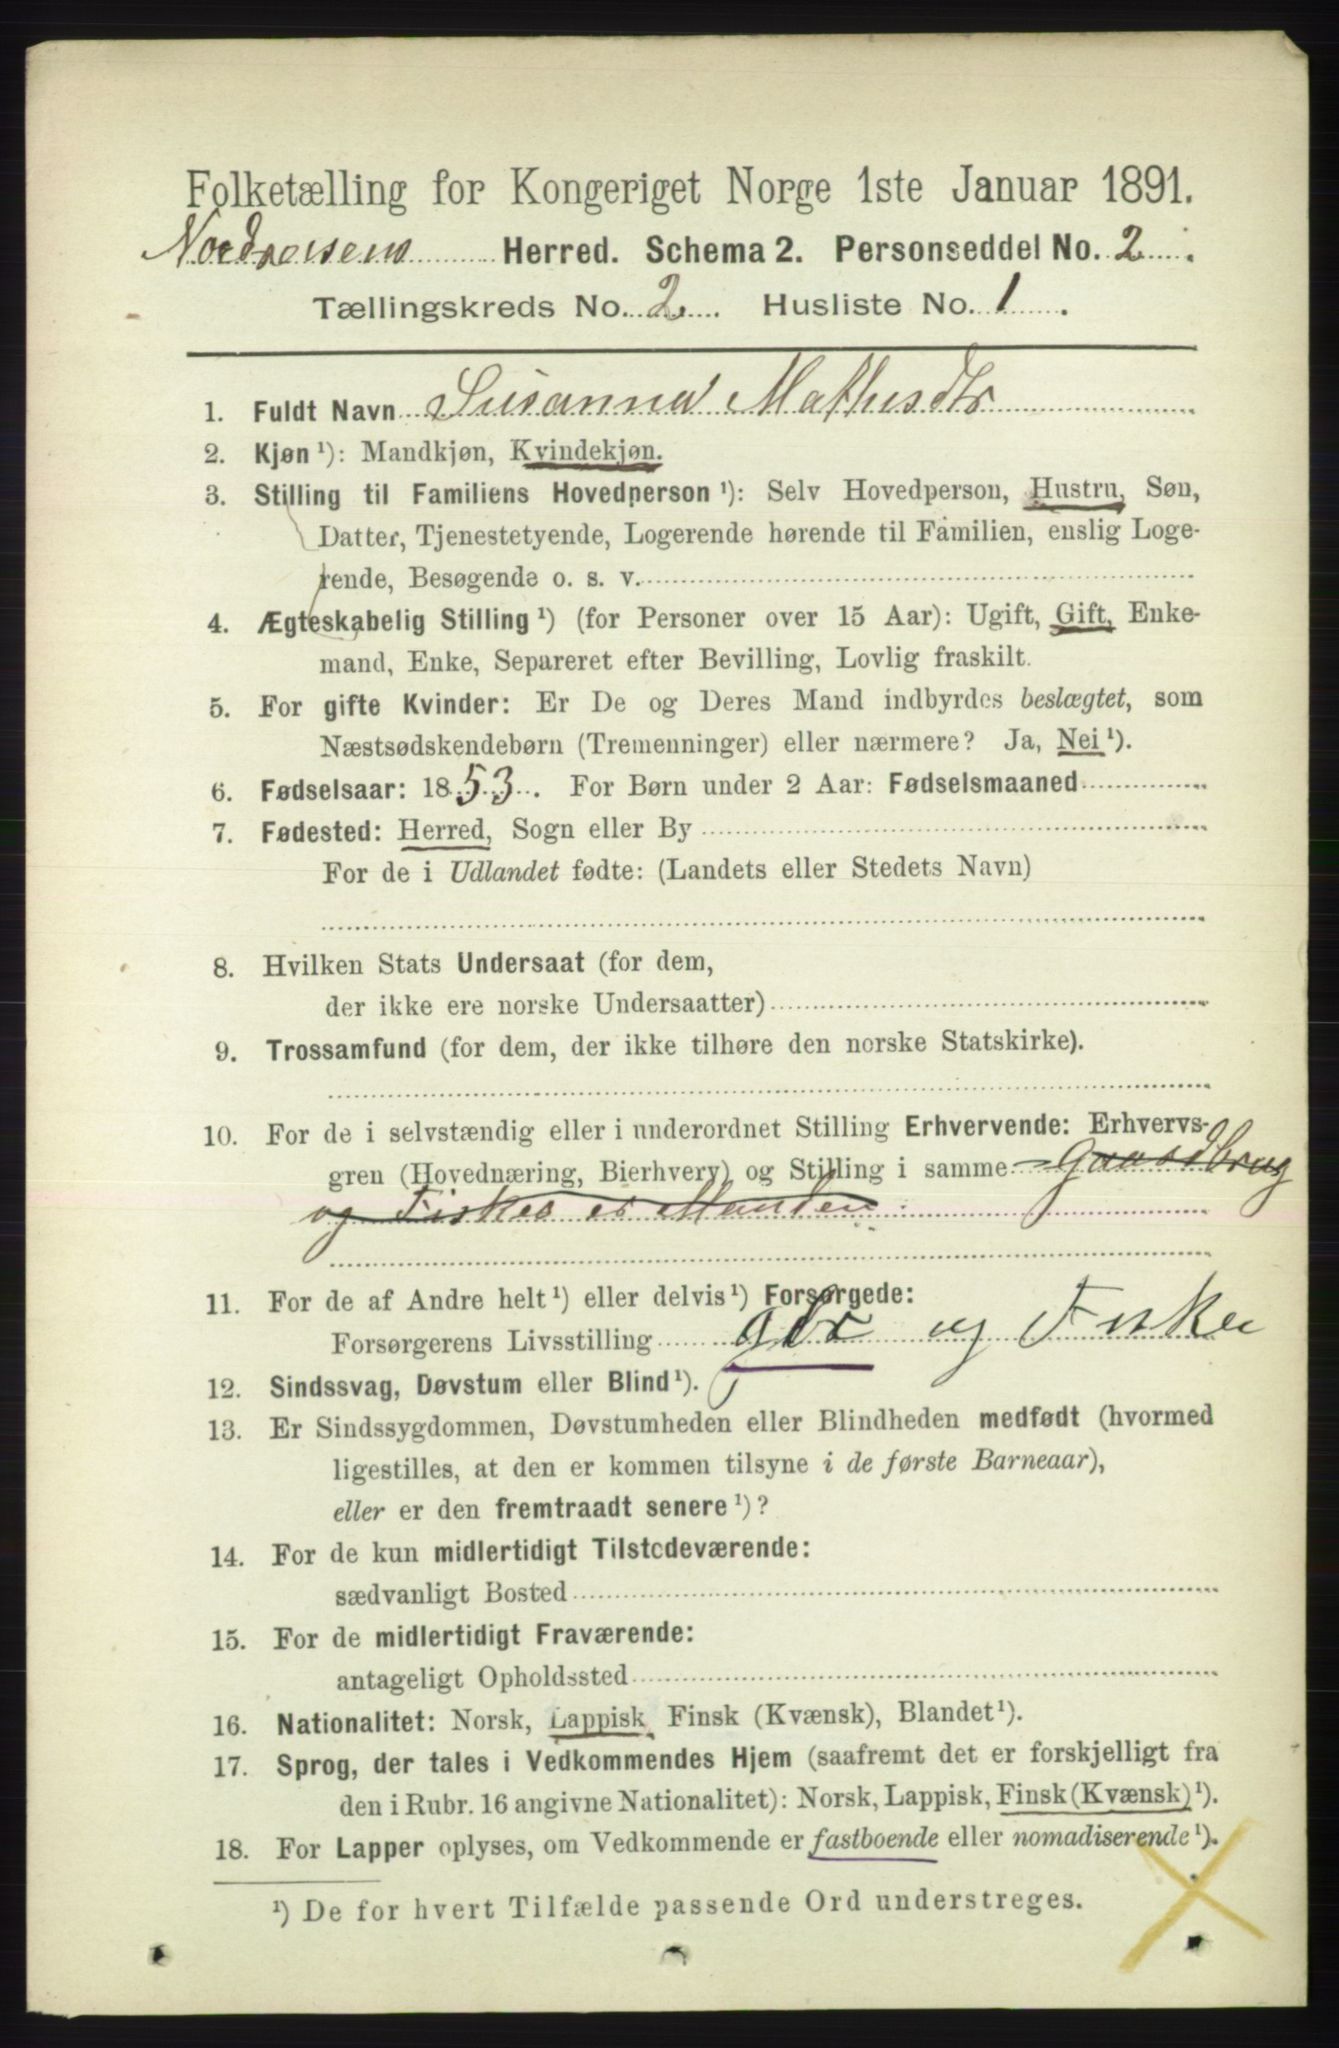 Folketælling for Kongeriget Norge 1ste Januar 1891.
Nordreisens Herred. Schema 2. Personseddel No. 2.
Tællingskreds No. 2. Husliste No. 1.
1. Fuldt Navn Susanna Mathisdtr
2. Kjøn ¹): Mandkjøn, Kvindekjøn.
3. Stilling til Familiens Hovedperson ¹): Selv Hovedperson, Hustru, Søn,
Datter, Tjenestetyende, Logerende hørende til Familien, enslig Loge-
rende, Besøgende o. s. v.
4. Ægteskabelig Stilling ¹) (for Personer over 15 Aar): Ugift, Gift, Enke-
mand, Enke, Separeret efter Bevilling, Lovlig fraskilt.
5. For gifte Kvinder: Er De og Deres Mand indbyrdes beslægtet, som
Næstsødskendebørn (Tremenninger) eller nærmere? Ja, Nei ¹).
6. Fødselsaar: 1853. For Børn under 2 Aar: Fødselsmaaned
7. Fødested: Herred, Sogn eller By
For de i Udlandet fødte: (Landets eller Stedets Navn)
8. Hvilken Stats Undersaat (for dem,
der ikke ere norske Undersaatter)
9. Trossamfund (for dem, der ikke tilhøre den norske Statskirke).
10. For de i selvstændig eller i underordnet Stilling Erhvervende: Erhvervs-
gren (Hovednæring, Bierhverv) og Stilling i samme Gaardbrug
og Fisker er Manden
11. For de af Andre helt ¹) eller delvis ¹) Forsørgede:
Forsørgerens Livsstilling gbr og Fisker
12. Sindssvag, Døvstum eller Blind ¹).
13. Er Sindssygdommen, Døvstumheden eller Blindheden medfødt (hvormed
ligestilles, at den er kommen tilsyne i de første Barneaar),
eller er den fremtraadt senere ¹)?
14. For de kun midlertidigt Tilstedeværende:
sædvanligt Bosted
15. For de midlertidigt Fraværende:
antageligt Opholdssted
16. Nationalitet: Norsk, Lappisk, Finsk (Kvænsk), Blandet ¹).
17. Sprog, der tales i Vedkommendes Hjem (saafremt det er forskjelligt fra
den i Rubr. 16 angivne Nationalitet): Norsk, Lappisk, Finsk (Kvænsk) ¹).
18. For Lapper oplyses, om Vedkommende er fastboende eller nomadiserende ¹).
¹) De for hvert Tilfælde passende Ord understreges.